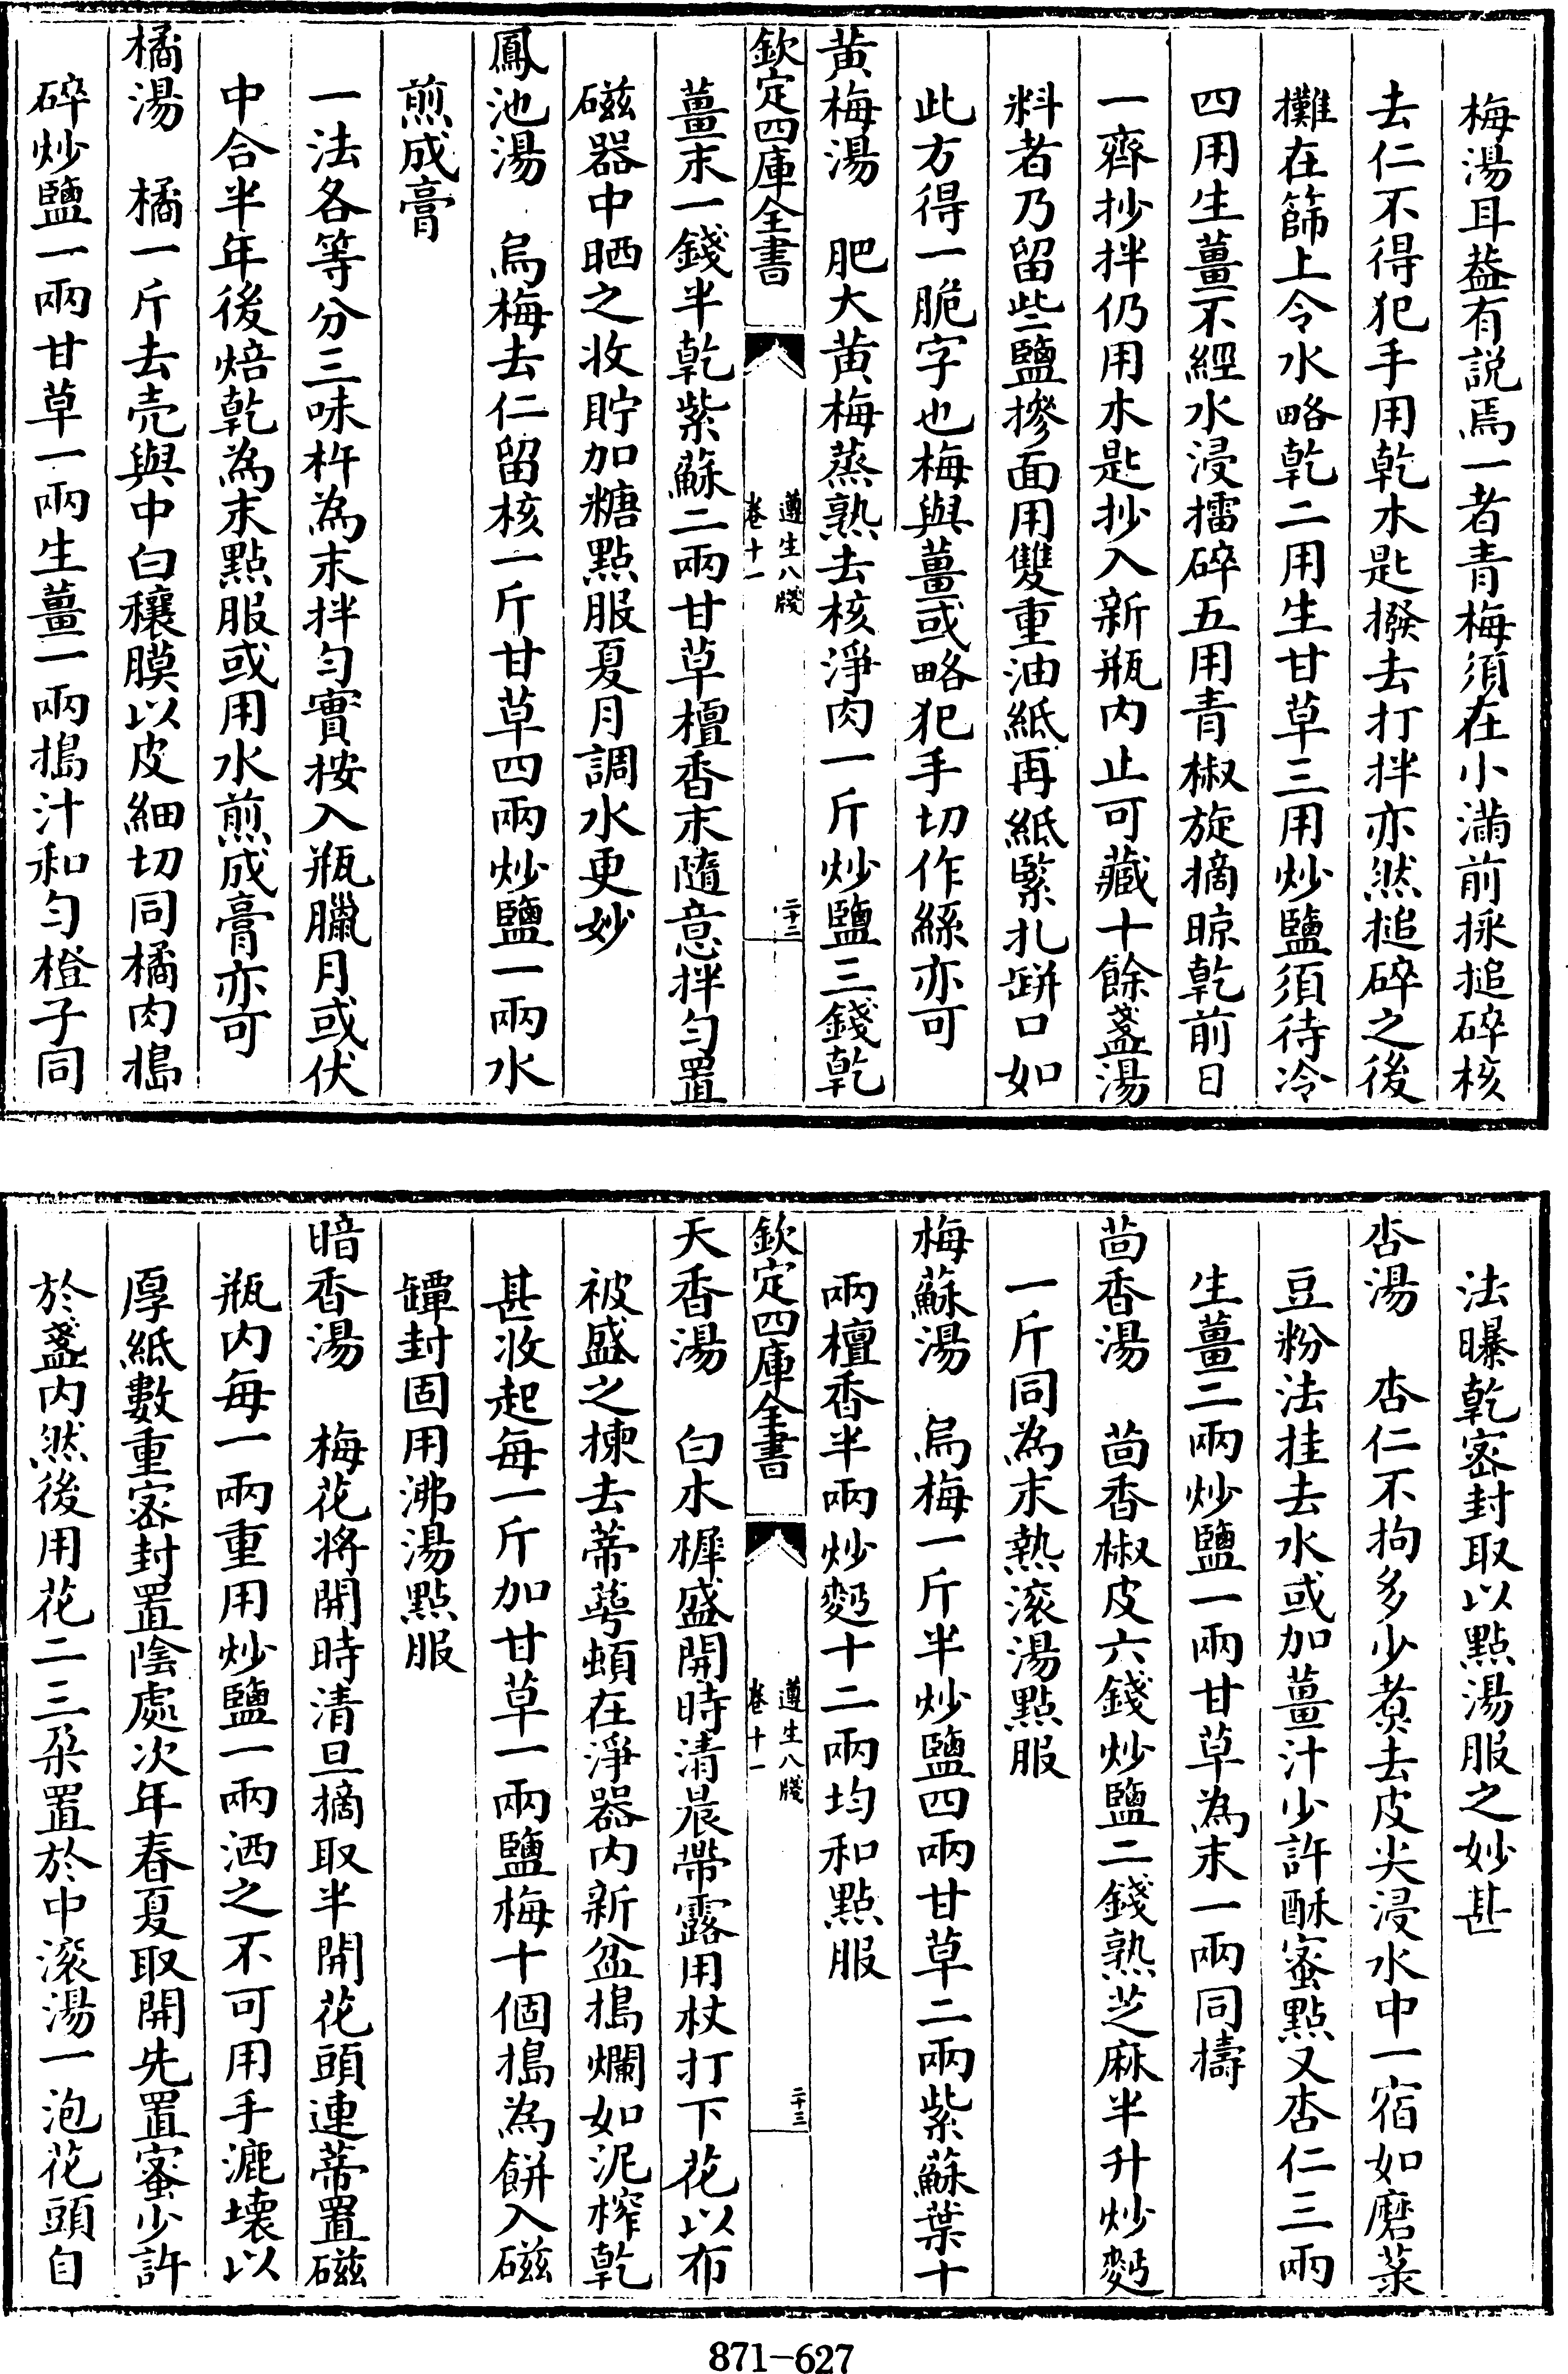 梅湯耳葢有說焉一者青梅須在小滿前採搥碎核
去仁不得犯手用乾木匙撥去打拌亦然搥碎之後
攤在篩上令水略乾二用生甘草三用炒鹽須待冷
四用生薑不經水浸擂碎五用青椒旋摘晾乾前日
一齊抄拌仍用木匙抄入新瓶内止可藏十餘盞湯
料者乃留些鹽摻面用雙重油紙再紙緊扎缾口如
此方得一脆字也梅與薑或略犯手切作絲亦可
黄梅湯　肥大黄梅蒸熟去核淨肉一斤炒鹽三錢乾
欽定四庫全書
遵生八牋
卷十一
二十二
薑末一錢半乾紫蘇二兩甘草檀香末隨意拌勻置
磁器中晒之收貯加糖點服夏月調水更妙
鳳池湯　烏梅去仁留核一斤甘草四兩炒鹽一兩水
煎成膏
一法各等分三味杵為末拌勻實按入瓶臘月或伏
中合半年後焙乾為末點服或用水煎成膏亦可
橘湯　橘一斤去殼與中白穰膜以皮細切同橘肉搗
碎炒鹽一兩甘草一兩生薑一兩搗汁和勻橙子同
法曝乾密封取以點湯服之妙甚
杏湯　杏仁不拘多少煮去皮尖浸水中一宿如磨菉
豆粉法挂去水或加薑汁少許酥蜜點又杏仁三兩
生薑二兩炒鹽一兩甘草為末一兩同擣
茴香湯　茴香椒皮六錢炒鹽二錢熟芝麻半升炒麪
一斤同為末熱滚湯點服
梅蘇湯　烏梅一斤半炒鹽四兩甘草二兩紫蘇葉十
兩檀香半兩炒麪十二兩均和點服
欽定四庫全書
遵生八牋
卷十一
二十三
天香湯　白木樨盛開時清晨帶露用杖打下花以布
被盛之揀去蒂萼頓在淨器内新盆搗爛如泥榨乾
甚收起每一斤加甘草一兩鹽梅十個搗為餅入磁
罈封固用沸湯點服
暗香湯　梅花將開時清旦摘取半開花頭連蒂置磁
瓶内每一兩重用炒鹽一兩洒之不可用手漉壊以
厚紙數重密封置陰處次年春夏取開先置蜜少許
於盞内然後用花二三朶置於中滚湯一泡花頭自
871-627